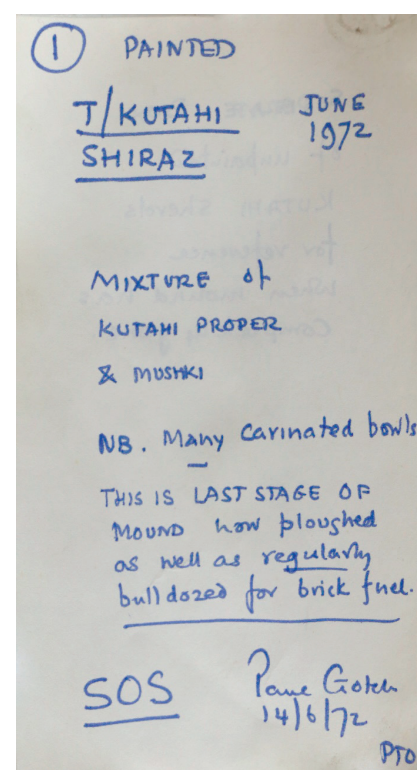 1 PAINTED
T/KUTAHI JUNE
SHIRAZ 1972
MIXTURE of
KUTAHI PROPER
& MUSHKI
NB. Many carinated bowls
THIS IS LAST STAGE OF
MOUND now ploughed
as well as regularly
bulldozed for brick fuel.
SOS Paul Gotch
14/6/72
PTO